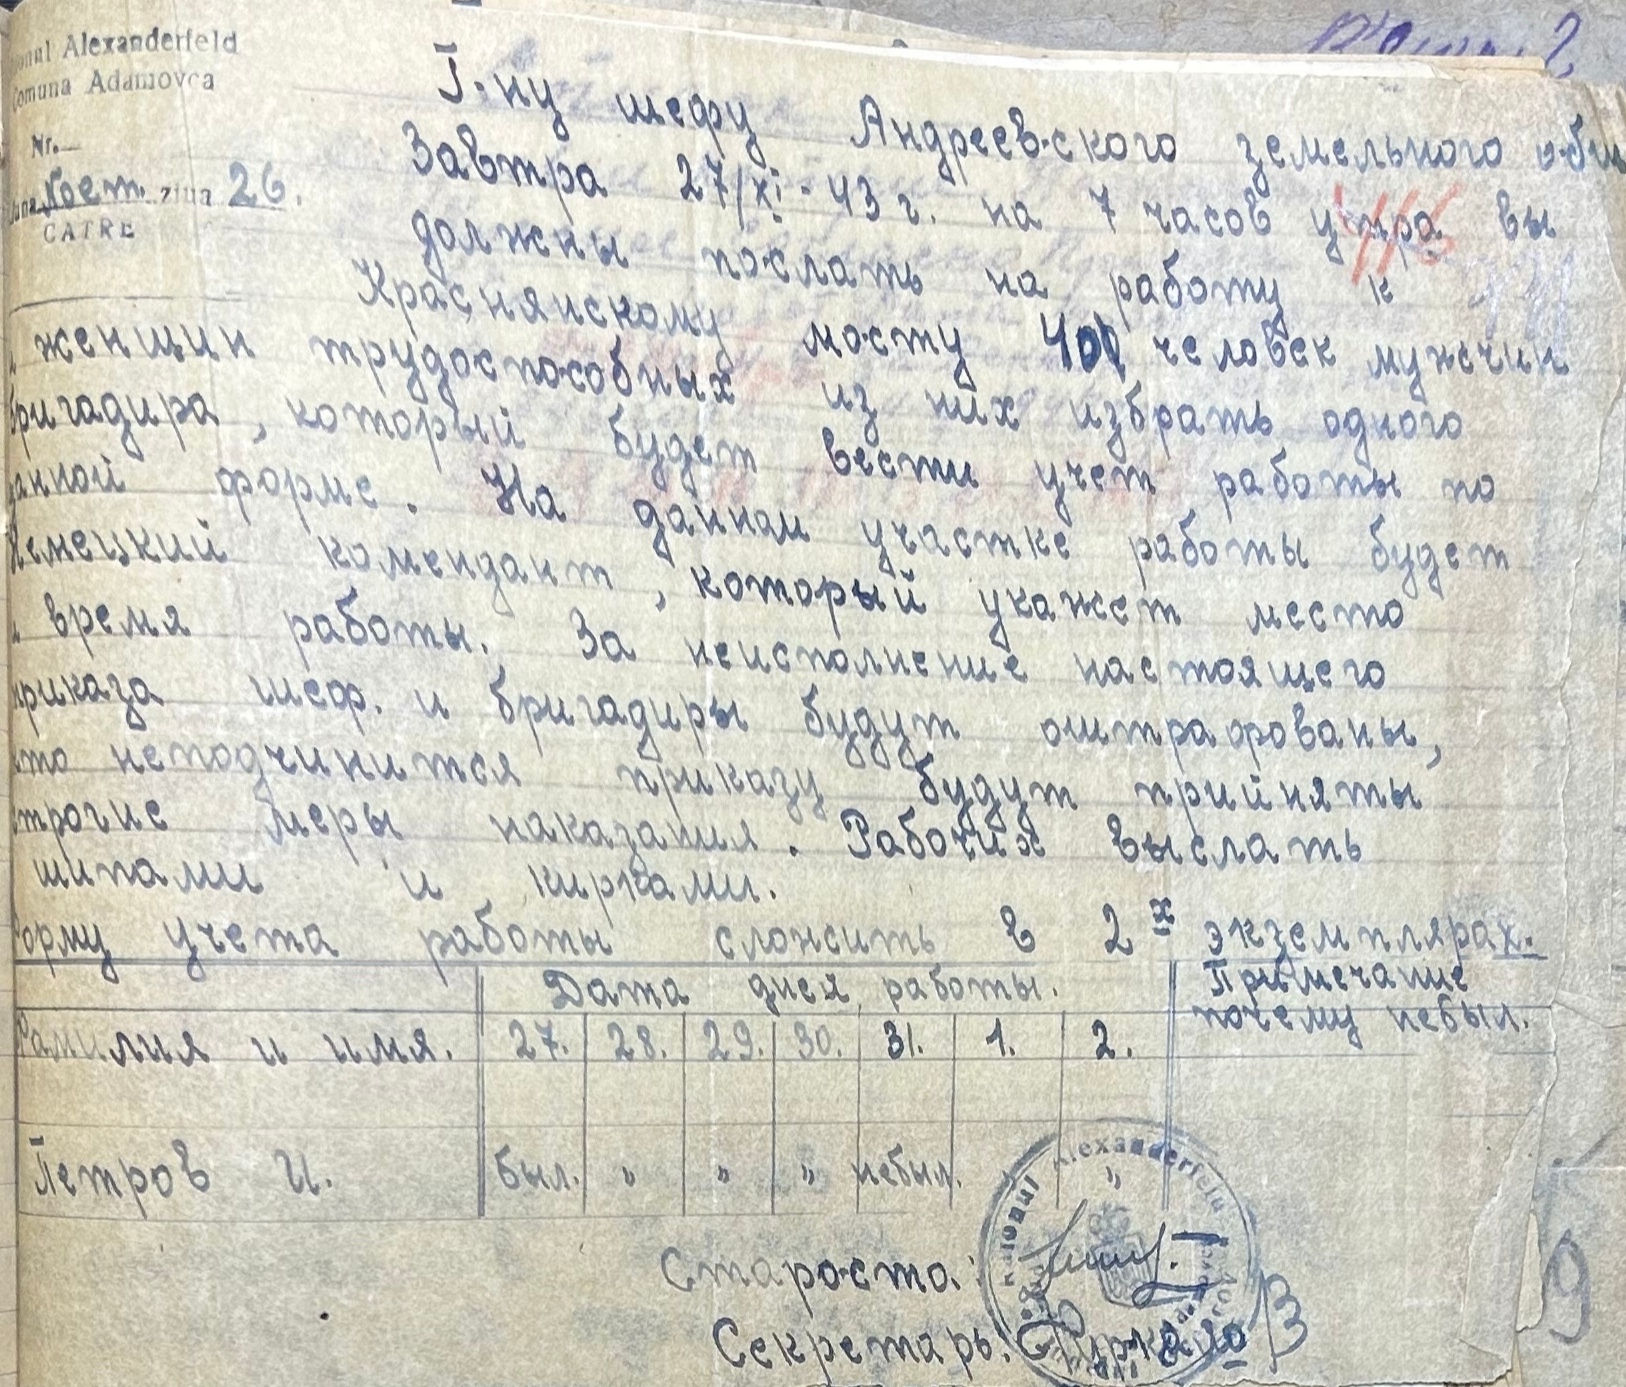 Alexanderfeld
Comuna Adamovca
Nr.
Ноет. ziua 26.
CATRE
Г-ну шефу Андреевского земельного общ
Завтра 27/XI-43 г. на 7 часов утра вы
должны послать на работу к
Краснянскому мосту 40 человек мужчин
и женщин трудоспособных из них избрать одного
бригадира, который будет вести учет работы по
данной форме. На данном участке работы будет
Немецкий комендант, который укажет место
и время работы. За неисполнение настоящего
приказа шеф. и бригадиры будут оштрафованы,
кто неподчинится приказу будут прийняты
строгие меры наказания. Рабочих выслать
шипами и кирками.
Форму учета работы сложить в 2х экземплярах.
Дата дней работы. Примечание
почему небыл.
Фамилия и имя. 27. 28. 29. 30. 31. 1. 2.
Петров И. был. " " " небыл. "
Alexanderfeld
Староста:
Секретарь:
9